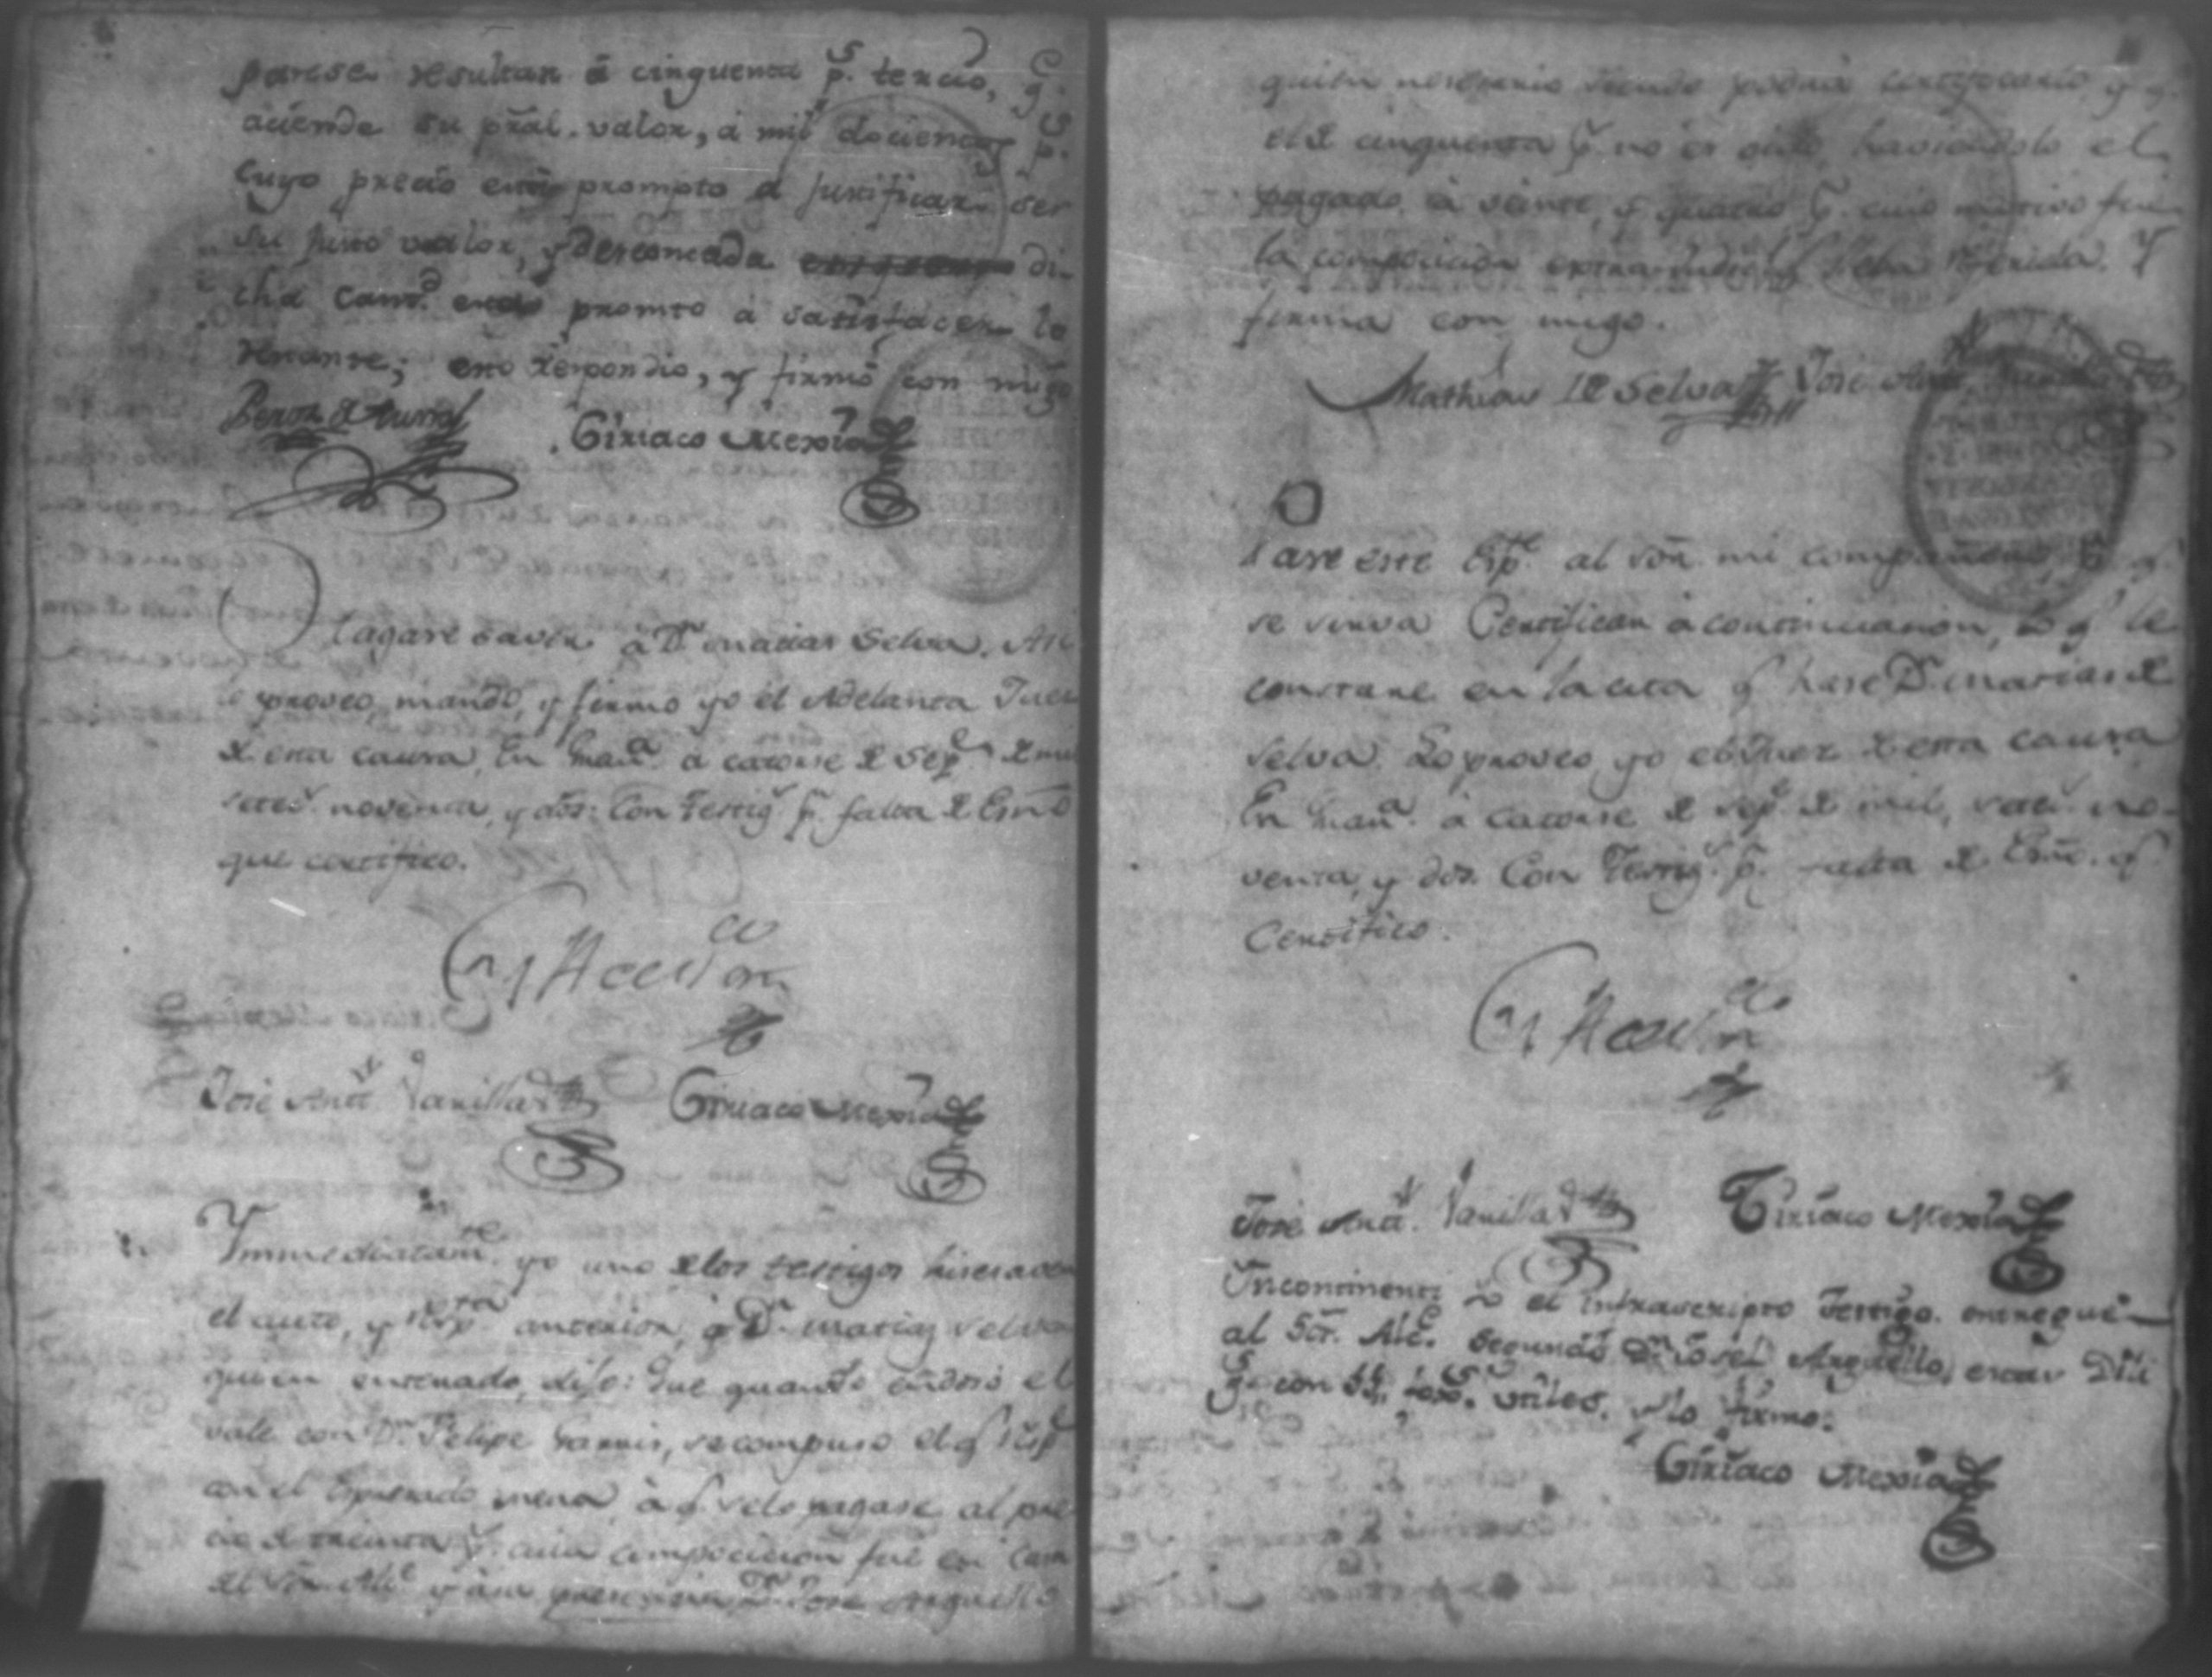 parese resultan á cinquenta p.s tercio, q.e
aciende su pral. valor, á mil docientos p.s
cuyo precio está prompto á justificar ser
su justo valor, y descontada di-
cha cant.d está promto á satisfacer lo
restante; esto respondio, y firmó con migo
Ciriaco Mexia
Hagase saver á D.n Matias Selva. Asi
lo proveo, mando, y firmo yo el Adelanta Juez
de esta causa, En Man.a á catorse de Sep.e de mil
setec.s noventa, y dos: Con Testig.s p.r falta de Esno
que certifico.
José Ant.o Varilla Ciriaco Mexia
Immediatam.te yo uno de los testigos hise saver
el auto, y resp.ta anterior, á D.n Matias Selva
quien enterado, dijo: Que quando endosó el
vale con D.n Felipe, se compuso el q.e resp.de
con el Expresado Mena, á q.e se lo pagase al pre
cio de treinta p.s cuia composicion fué en casa
del Sōr. Alc.e y á su presencia D.n José Arguello
quien nesesario siendo podrá certificarlo y q.e
el de cinquenta p.s no es dito, haviendolo el
pagado á veinte, y quatro p.s cuio motivo fue
la composicion extrajudicial q.e lleba referida. Y
firma con migo.
Mathias de Selva José Ant.o
Pase este Esp.te al Sōr. mi compañero, p.a q.e
se sirva Certificar á continuacion, lo q.e le
constare en la cita q.e hase D.n Matias de
Selva. Lo proveo yo el Juez de esta causa
En Man.a á catorse de Sep.e de mil, setec.s no-
venta, y dos. Con Testig.s p.r falta de Esno. q.e
Certifico.
José Ant.o Varilla Ciriaco Mexia
Yncontinenti yo el infrascripto Testigo. entregué
al Sōr. Alc.e Segundo D.n Josef Arguello, estas Dili
g.s con fox.s utiles. y lo firmo.
Ciriaco Mexia